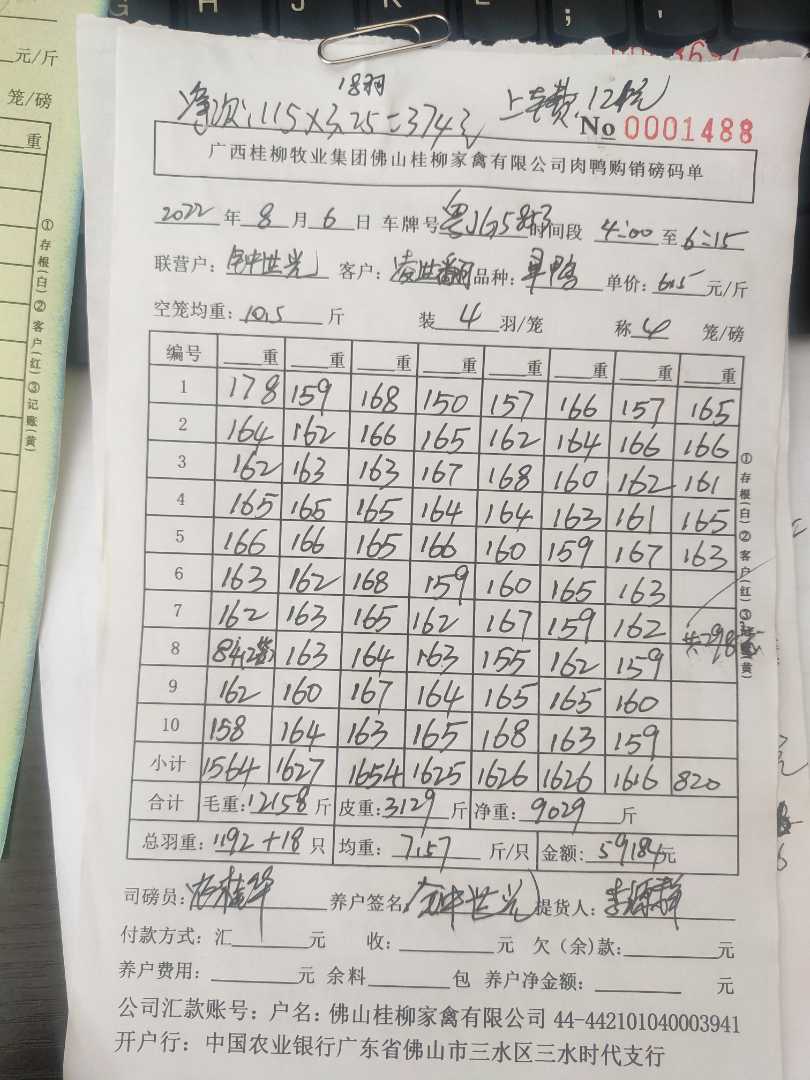 元/斤
笼/磅
重
①存根(白)②客户(红)③记账(黄)
G H J K L ; '
18羽
净次:115×3.25=374元 上车费:12元
No 0001488
广西桂柳牧业集团佛山桂柳家禽有限公司肉鸭购销磅码单
2022年8月6日 车牌号 时间段 4:00 至 6:15
联营户:钟世光 客户: 品种:旱鸭 单价:6.5元/斤
空笼均重:10.5斤 装4羽/笼 称4笼/磅
编号 重 重 重 重 重 重 重 重
1 178 159 168 150 157 166 157 165
2 164 162 166 165 162 164 166 166
3 162 163 163 167 168 160 162 161
4 165 165 165 164 164 163 161 165
5 166 166 165 166 160 159 167 163
6 163 162 168 159 160 165 163
7 162 163 165 162 167 159 162
8 84(2笼) 163 164 163 155 162 159 共298笼
9 162 160 167 164 165 165 160
10 158 164 163 165 168 163 159
小计 1564 1627 1654 1625 1626 1626 1616 820
合计 毛重:12158斤 皮重:3129斤 净重:9029斤
总羽重:1192+18只 均重:7.57斤/只 金额:59184元
①存根(白)②客户(红)③记账(黄)
司磅员: 养户签名:钟世光 提货人:
付款方式:汇 元 收: 元 欠(余)款: 元
养户费用: 元 余料 包 养户净金额: 元
公司汇款账号:户名:佛山桂柳家禽有限公司 44-442101040003941
开户行:中国农业银行广东省佛山市三水区三水时代支行